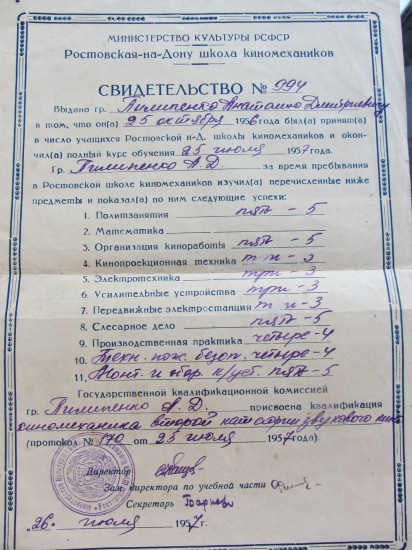 МИНИСТЕРСТВО КУЛЬТУРЫ РСФСР
Ростовская-на-Дону школа киномехаников
СВИДЕТЕЛЬСТВО № 994
Выдано гр. Пилипенко Анатолию Дмитриевичу
в том, что он(а) 25 октября 1956 года был(а) принят(а)
в число учащихся Ростовской н-Д. школы киномехаников и окон-
чил(а) полный курс обучения 25 июля 1957 года.
Гр. Пилипенко А. Д. за время пребывания
в Ростовской школе киномехаников изучил(а) перечисленные ниже
предметы и показал(а) по ним следующие успехи:
1. Политзанятия пять - 5
2. Математика
3. Организация киноработы пять - 5
4. Кинопроекционная техника три - 3
5. Электротехника три - 3
6. Усилительные устройства три - 3
7. Передвижные электростанции три - 3
8. Слесарное дело пять - 5
9. Производственная практика четыре - 4
10. Техн. пож. безоп. четыре - 4
11. Монт. и обор. к/уст. пять - 5
Государственной квалификационной комиссией
гр. Пилипенко А. Д. присвоена квалификация
киномеханика второй категории звукового кино
(протокол № 170 от 25 июля 1957 года).
Директор
Зам. директора по учебной части
Секретарь
"26" июля 1957 г.